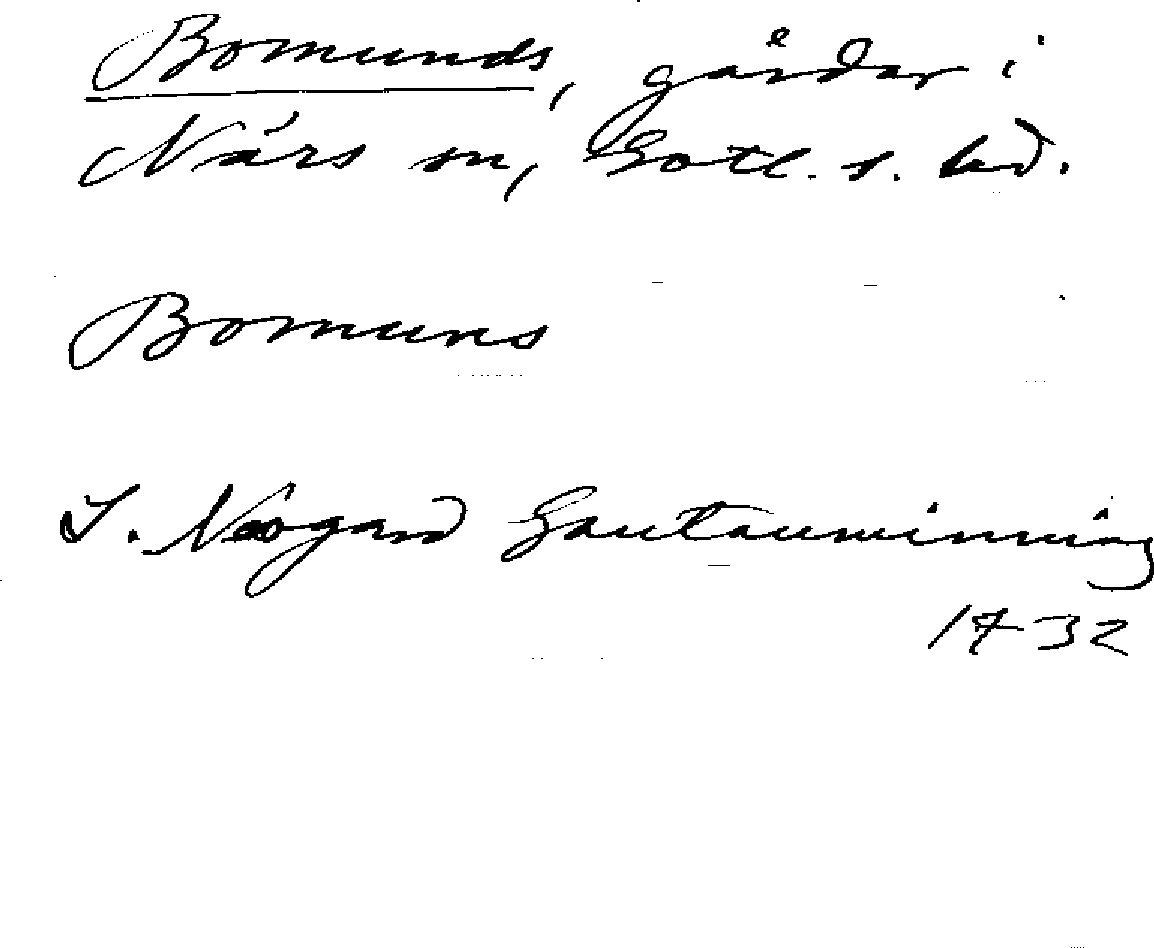 Bomunds, gårdar i
Närs sn, Gotl. s. hd.
Bomuns
J. Neogard Gautauminning
1732